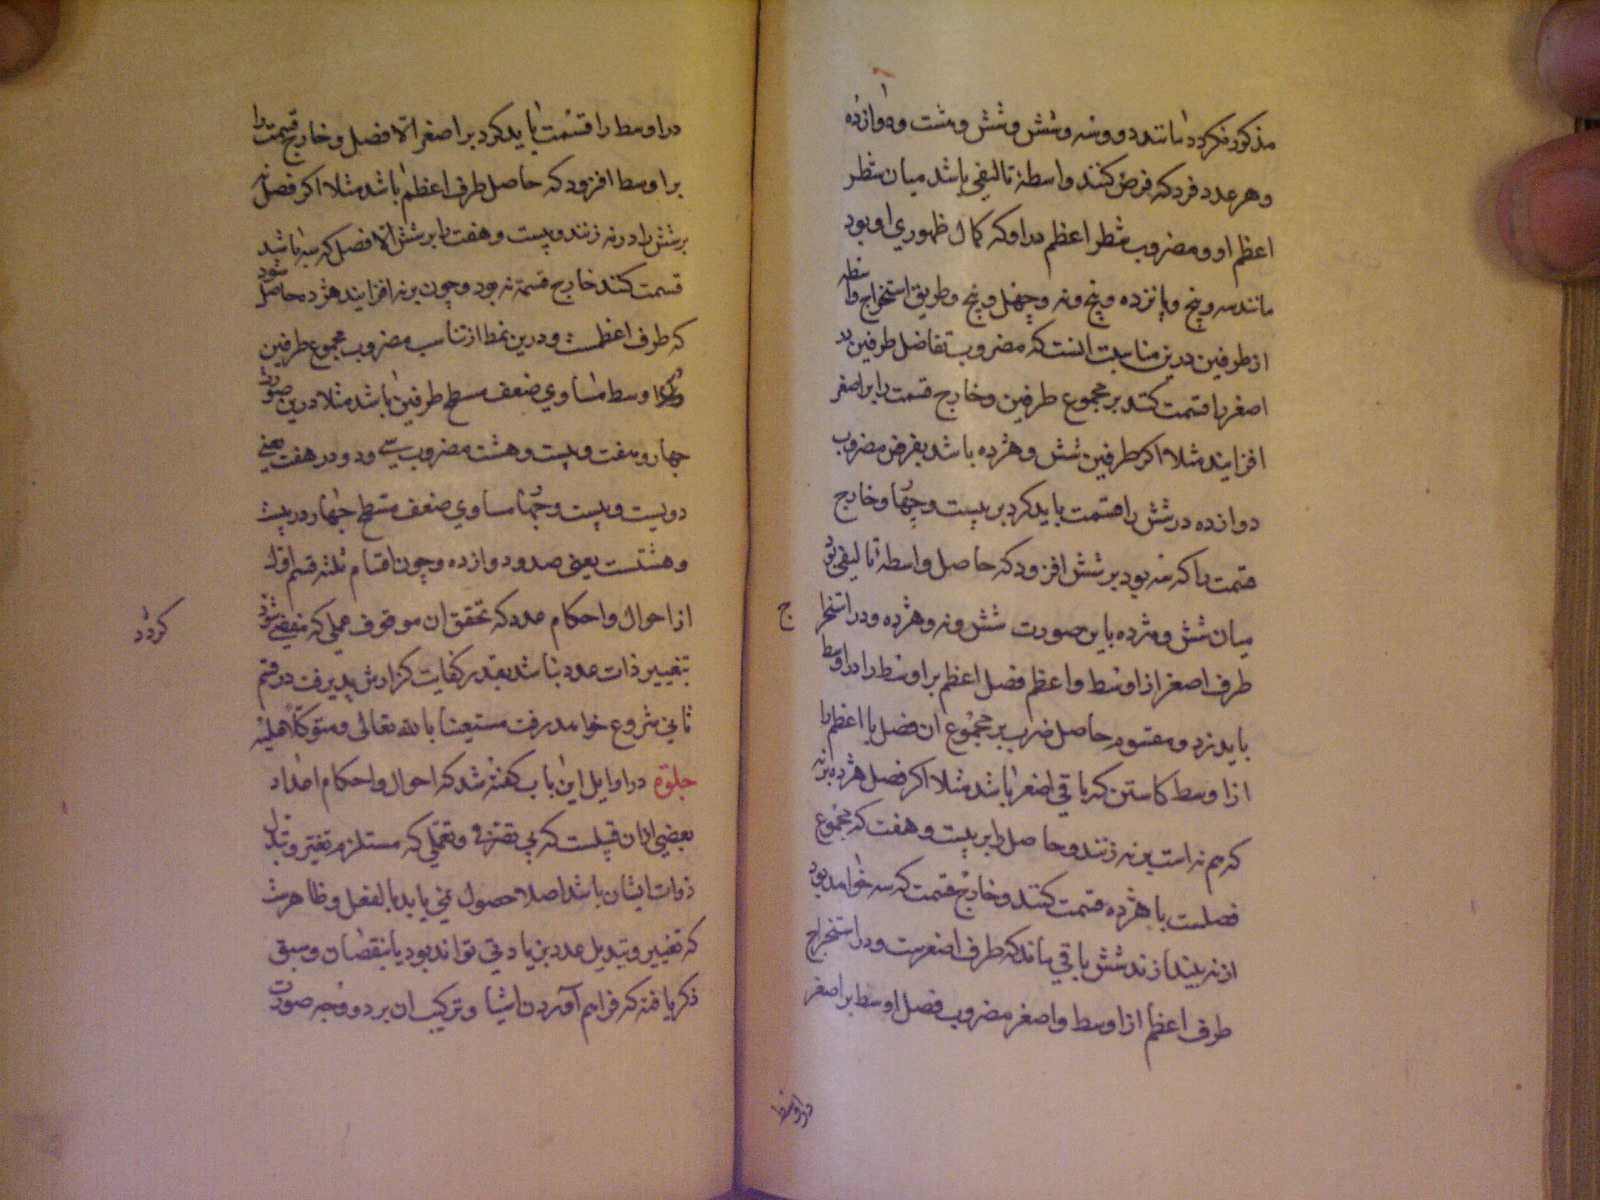 مذکور نکردد مانند دو و سه و شش و شش و هشت و دوازده
و هر عدد فرد که فرض کنند واسطهٔ تالیفی باشد میان شطر
اعظم او و مضروب شطر اعظم در او که کمال ظهوری او بود
مانند سه و پنج و پانزده و پنج و نه و چهل و پنج و طریق استخراج واسطه
از طرفین درین مناسبت انست که مضروب تفاضل طرفین در
اصغر را قسمت کنند بر مجموع طرفین و خارج قسمت را بر اصغر
افزایند مثلا اکر طرفین شش و هژده باشد بفرض مضروب
دوازده در شش را قسمت باید کرد بر بیست و چهار و خارج
قسمت را که سه بود بر شش افزود که حاصل واسطه تالیفی بود
میان شش و هژده باین صورت شش و نه و هژده و در استخراج
طرف اصغر از اوسط و اعظم فضل اعظم بر اوسط را در اوسط
باید زد و مقسوم حاصل ضرب بر مجموع ان فضل با اعظم را
از اوسط کاستن که باقی اصغر باشد مثلا اکر فضل هژده بر نه
که هم نه است بر نه زنند و حاصل را بر بیست و هفت که مجموع
فضلست با هژده قسمت کنند و خارج قسمت که سه خواهد بود
از نه بیندازند شش باقی ماند که طرف اصغرست و در استخراج
طرف اعظم از اوسط و اصغر مضروب فضل اوسط بر اصغر
در اوسط
در اوسط را قسمت باید کرد بر اصغر الا فضل و خارج قسمت را
بر اوسط افزود که حاصل طرف اعظم باشد مثلا اکر فضل نه
بر شش را در نه زنند و بیست و هفت را بر شش الا فضل که سه باشد
قسمت کنند خارج قسمة نه بود و چون بر نه افزایند هژده حاصل شود
که طرف اعظمست و درین نمط از تناسب مضروب مجموع طرفین
در اوسط مساوی ضعف مسطح طرفین باشد مثلا درین صورت
چهار و هفت و بیست و هشت مضروب سی و دو در هفت یعنی
دویست و بیست و چهار مساوی ضعف مسطح چهار در بیست
و هشتست یعنی صد و دوازده و چون اقسام ثلثه قسم اول
از احوال و احکام عدد که تحقق ان موقوف عملی که مفضی شود
بتغییر ذات عدد نباشد بقدر کفایت کزارش پذیرفت در قسم
ثانی شروع خواهد رفت مستعینا بالله تعالی و متوکلا علیه
جلوه در اوایل این باب کفته شد که احوال و احکام اعداد
بعضی ازان قبیلست که بی تصرف و تعملی که مستلزم تغیر و تبدل
ذوات ایشان باشد اصلا حصول نمی یابد بالفعل و ظاهرست
که تغییر و تبدیل عدد بزیادتی تواند بود یا بنقصان و سبق
ذکر یافته که فراهم آوردن اشیا و ترکیب ان بر دو وجه صورت
کردد